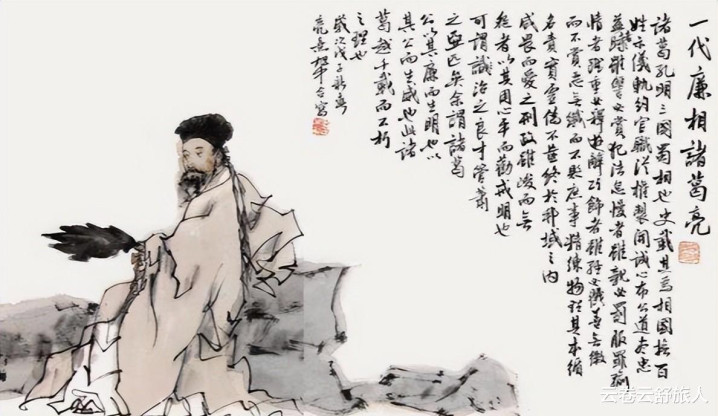 一代廉相諸葛亮
諸葛孔明三國蜀相也史載其爲相國撫百
姓示儀軌約官職從權製開誠心布公道盡忠
益時者雖讐必賞犯法怠慢者雖親必罰服罪輸
情者雖重必釋游辭巧飾者雖輕必戮善無微
而不賞惡無纖而不貶庶事精練物理其本循
名責實虛僞不齒終於邦域之內
咸畏而愛之刑政雖峻而無
怨者以其用心平而勸戒明也
可謂識治之良才管蕭
之亞匹矣余謂諸葛
公以其廉而生明也以
其公而生威也此諸
葛越千載而不朽
之理也
歲次戊子新春
合寫
云卷云舒旅人